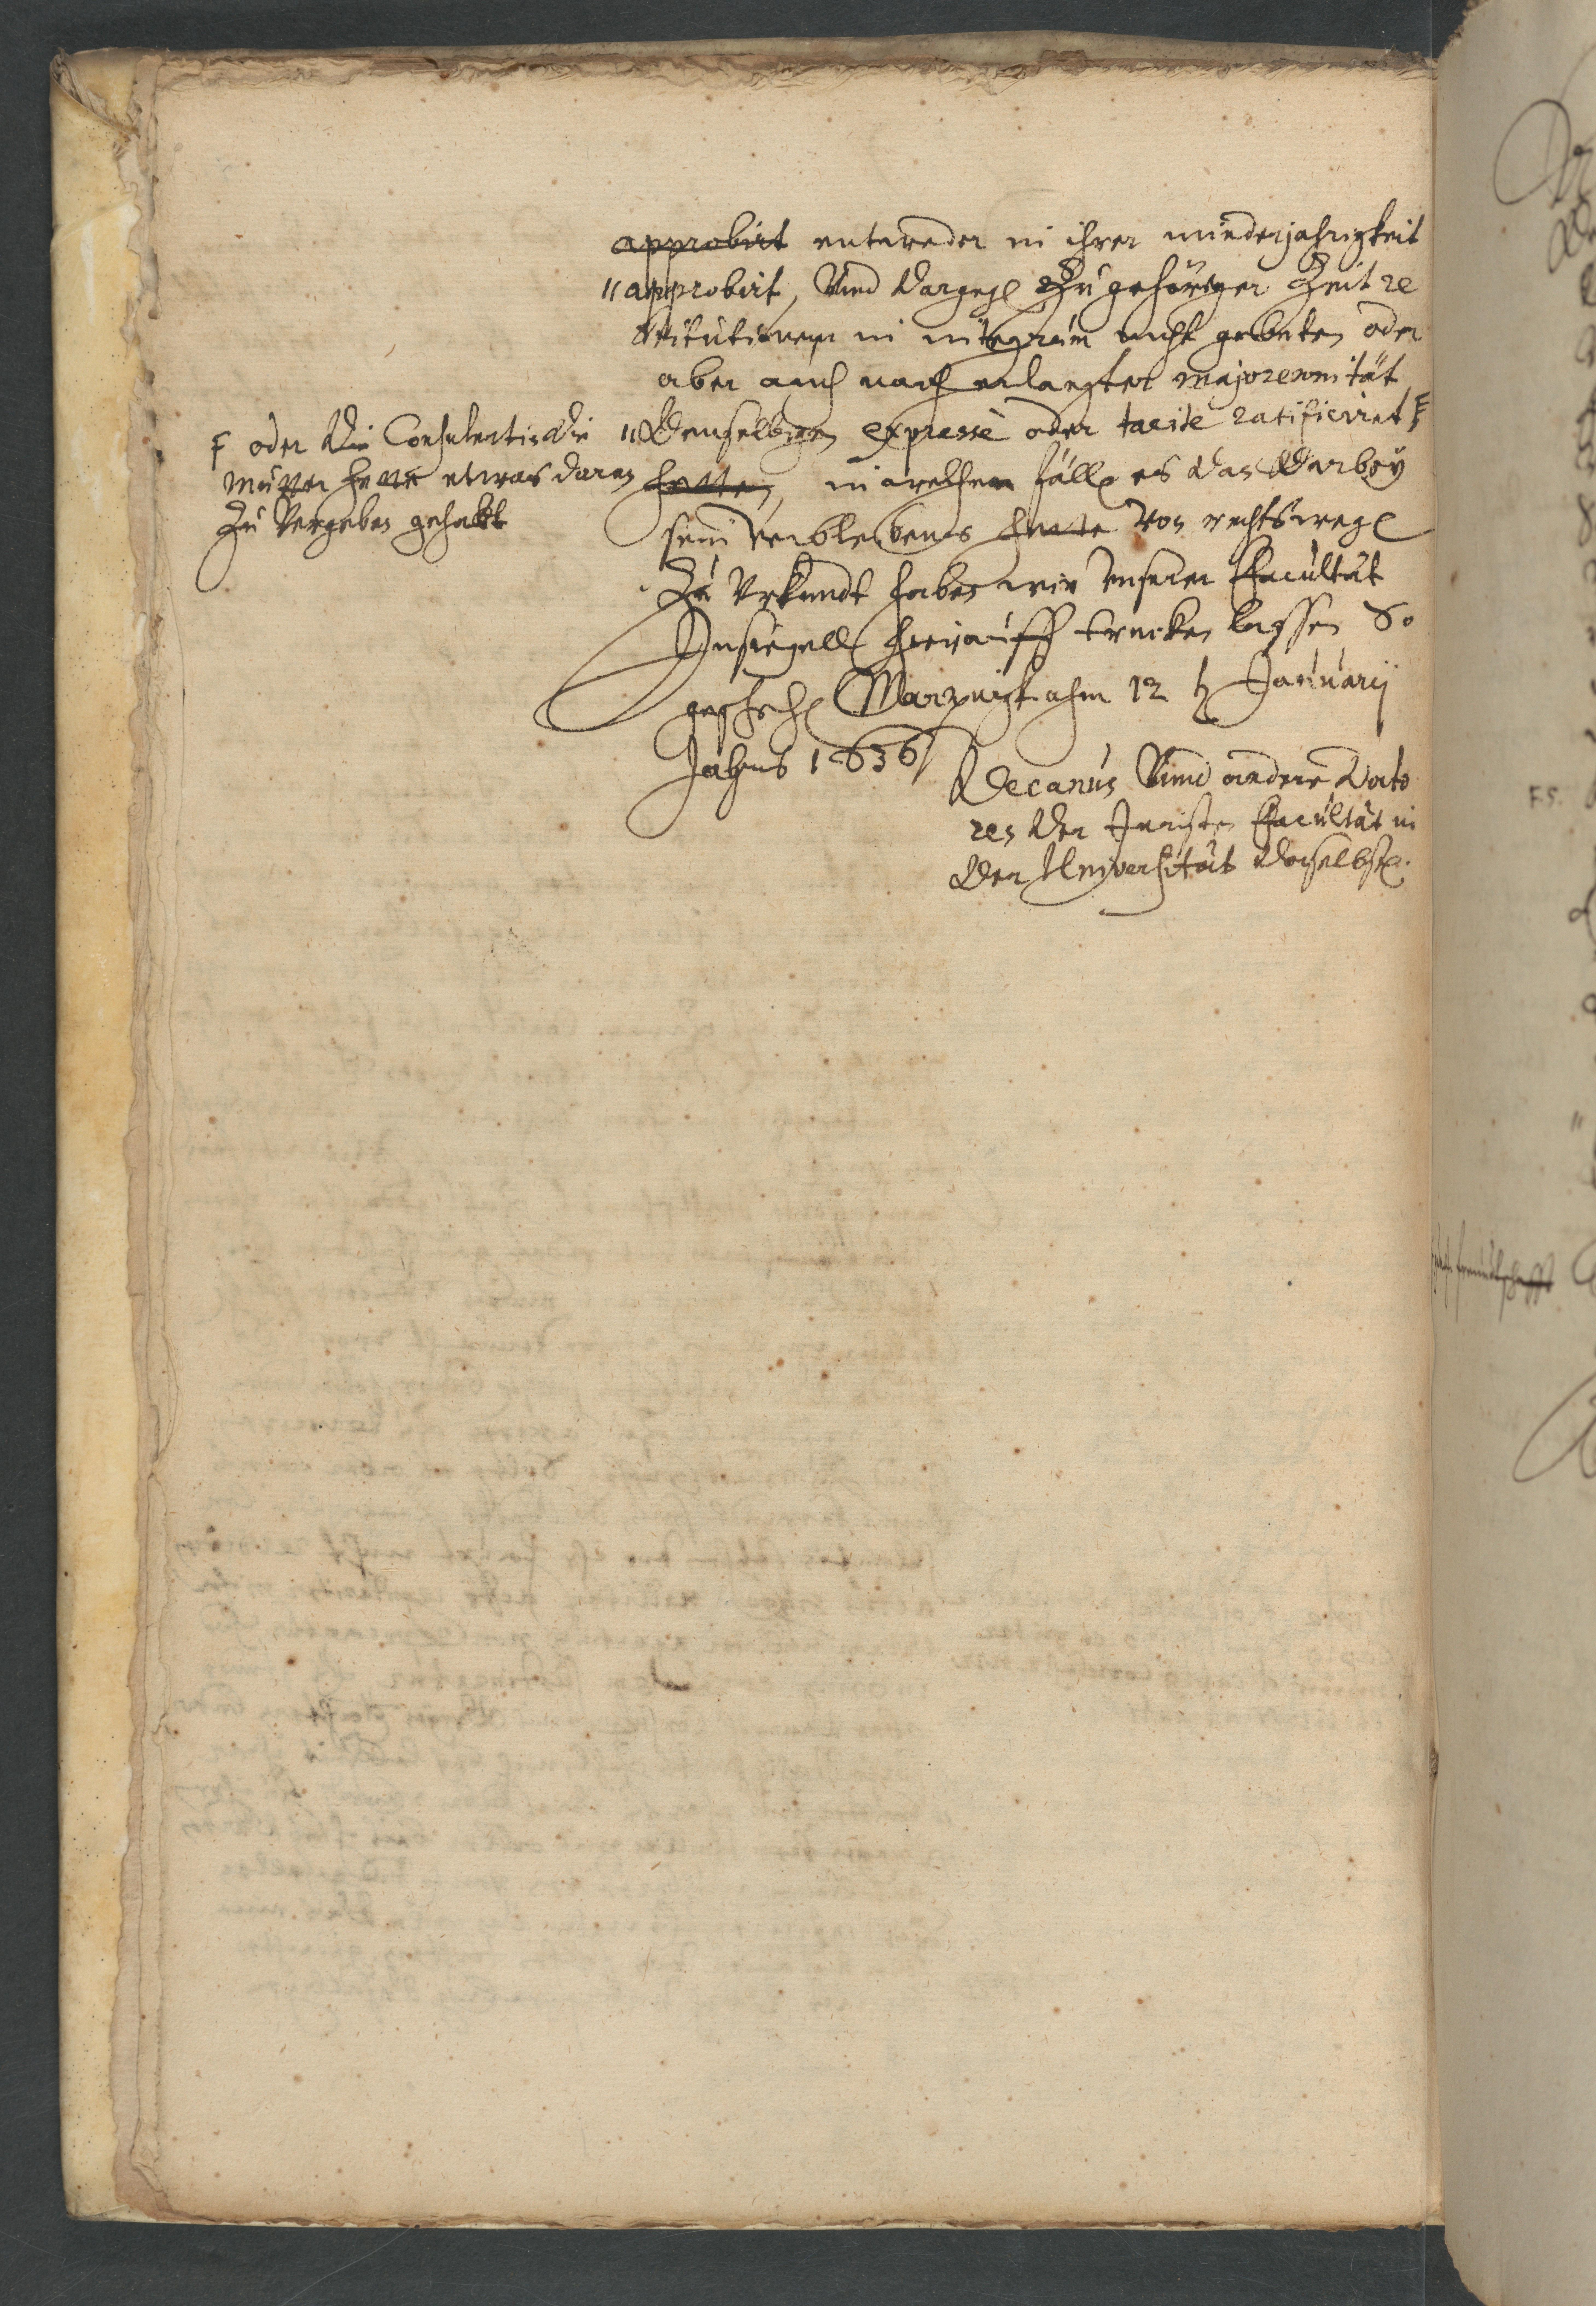 approbirt entweder in ihrer minderjahrigkeit
approbirt, Vnd dargegen Zu gehöriger Zeit re
stitutionem in integrum nicht gebeten oder
aber auch nach erlangter majorennität
denselbigen expressè oder tacitè ratificiret F
hetten, in welchem fall es dan darbey
sein verbleibens hette Von rechtswegen
Zu Vrkundt haben wir Vnserer Facultät
Insiegell hierauff trucken lassen So
geschehen Marpurgk ahm 12 Januarij
Jahrs 1636
F oder die Consulentin die
mutter hette etwas daran
Zu Vergeben gehabt
Decanus Vnnd andere Docto
res der Juristen Facultät in
der Universität daselbsten.
F.S.